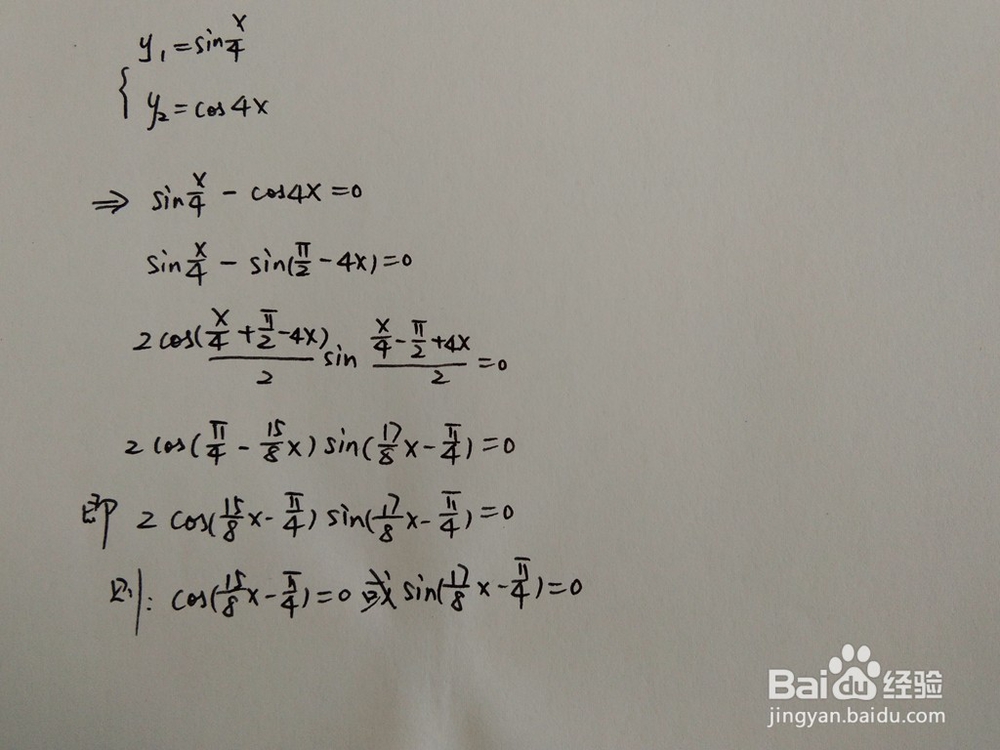 y₁=sin x/4
{ y₂=cos4x
⇒ sin x/4 - cos4x=0
sin x/4 - sin(π/2 - 4x)=0
2cos (x/4+π/2-4x)/2 sin (x/4-π/2+4x)/2 =0
2cos(π/4 - 15/8x) sin(17/8x - π/4)=0
即 2cos(15/8x - π/4) sin(17/8x - π/4)=0
则: cos(15/8x - π/4)=0 或 sin(17/8x - π/4)=0
Baidu经验
jingyan.baidu.com